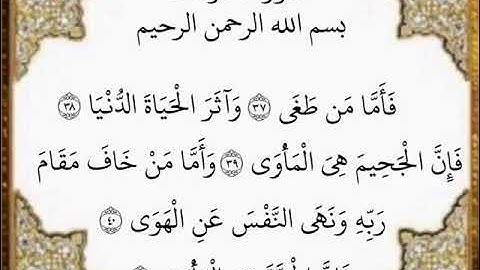 بسم الله الرحمن الرحيم
فَأَمَّا مَن طَغَى ٣٧ وَآثَرَ الْحَيَاةَ الدُّنْيَا ٣٨
فَإِنَّ الْجَحِيمَ هِيَ الْمَأْوَى ٣٩ وَأَمَّا مَنْ خَافَ مَقَامَ
رَبِّهِ وَنَهَى النَّفْسَ عَنِ الْهَوَى ٤٠